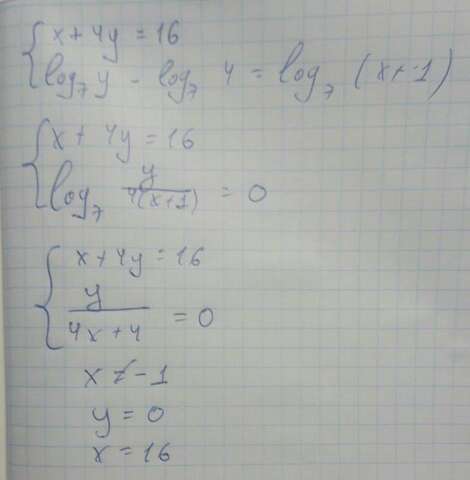 x + 4y = 16
log₇ y - log₇ 4 = log₇ (x+1)
x + 4y = 16
log₇ y/4(x+1) = 0
x + 4y = 16
y/4x+4 = 0
x ≠ -1
y = 0
x = 16